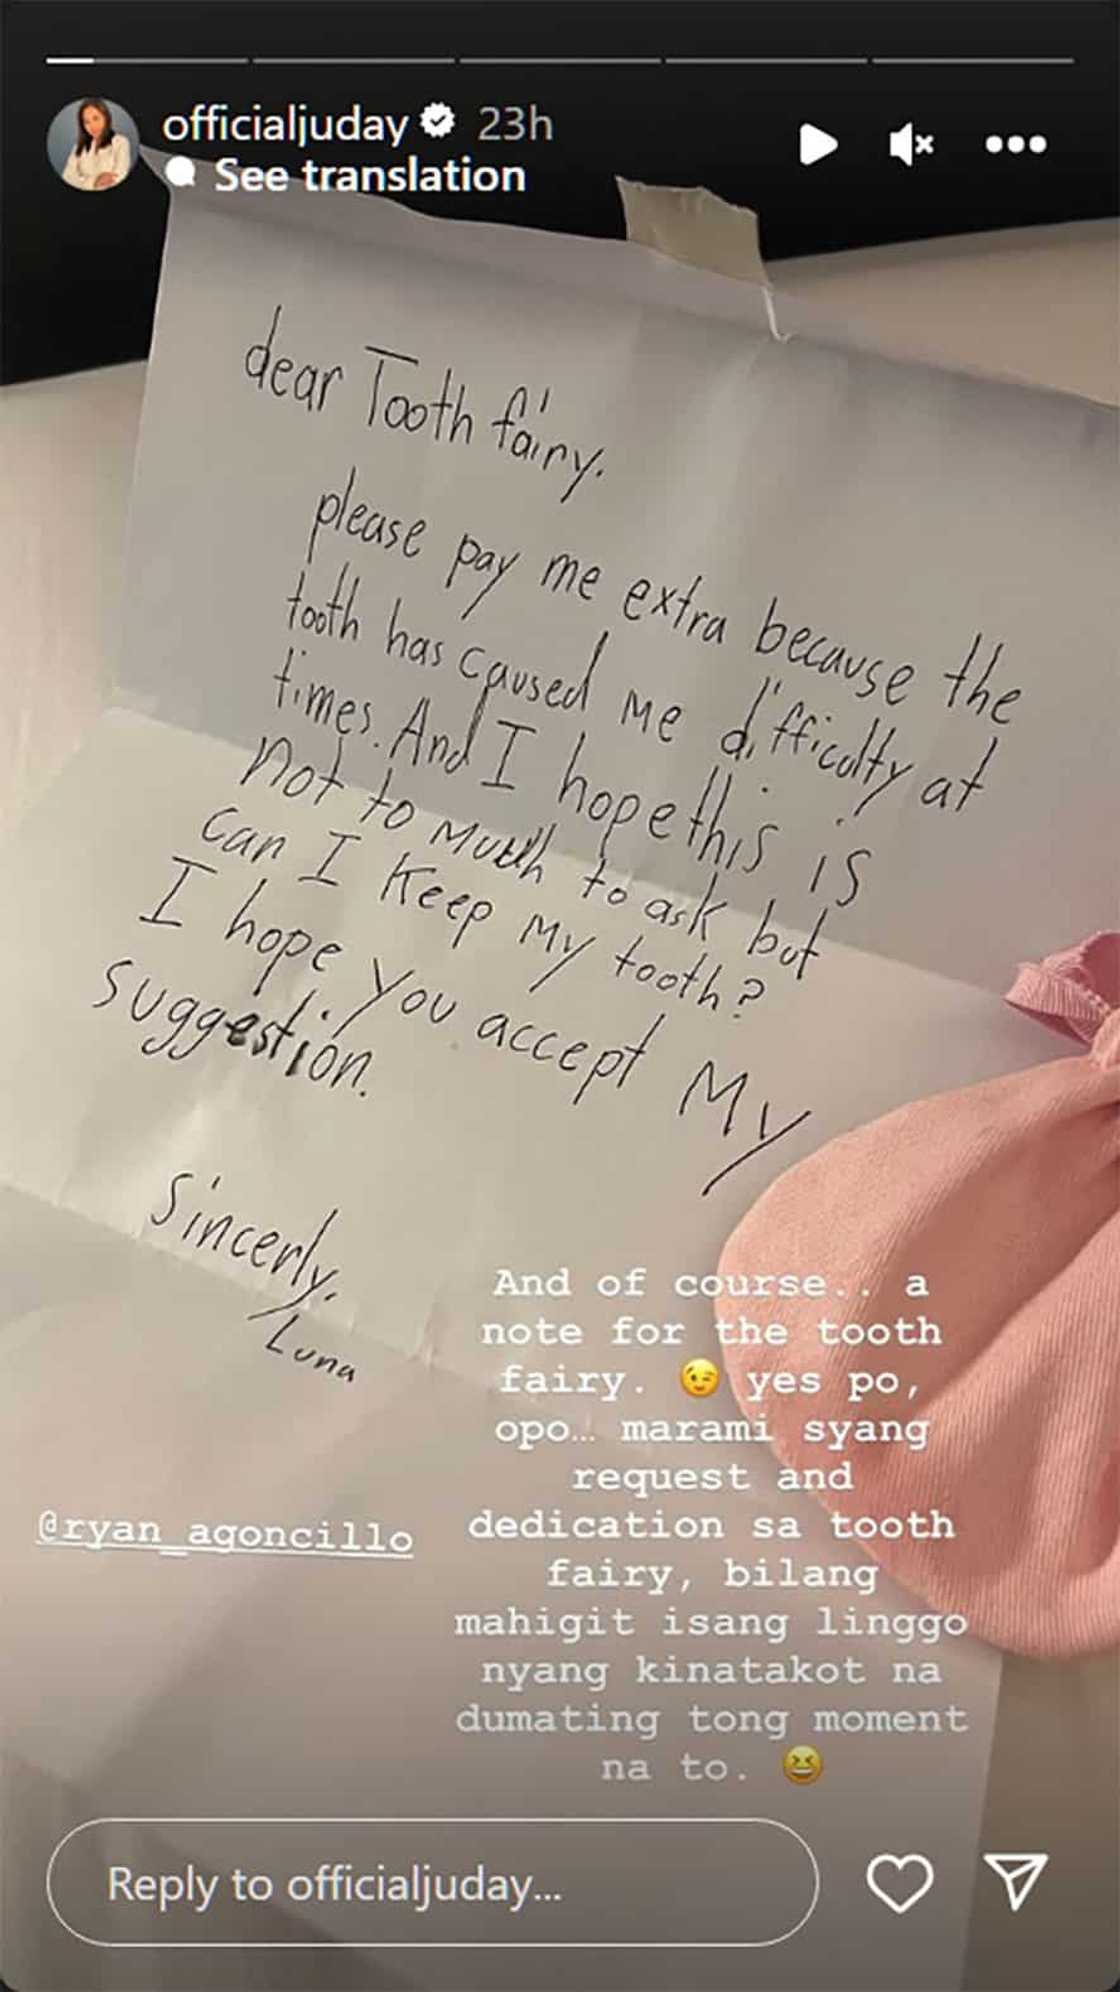 officialjuday 23h
See translation
dear Tooth fairy.
please pay me extra because the
tooth has caused me difficulty at
times. And I hope this is
not to much to ask but
can I keep my tooth?
I hope you accept My
suggestion.
Sincerly,
Luna
And of course.. a
note for the tooth
fairy. 😉 yes po,
opo… marami syang
request and
dedication sa tooth
fairy, bilang
mahigit isang linggo
nyang kinatakot na
dumating tong moment
na to. 😆
@ryan_agoncillo
Reply to officialjuday...